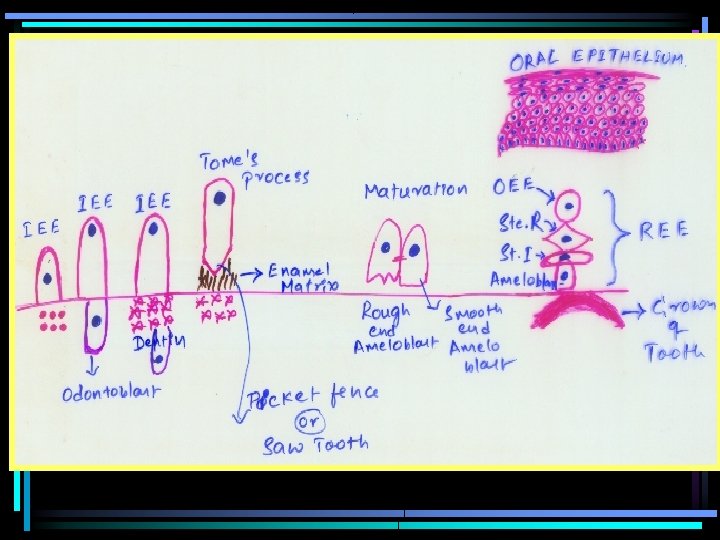 ORAL EPITHELIUM.
IEE
IEE
IEE
Tome's
Process
Enamel
Matrix
Dentin
Odontoblast
Pocket fence
or
Saw Tooth
Maturation
Rough
end
Ameloblast
Smooth
end
Amelo
blast
OEE
Ste.R
St.I
Ameloblast
REE
Crown
of
Tooth